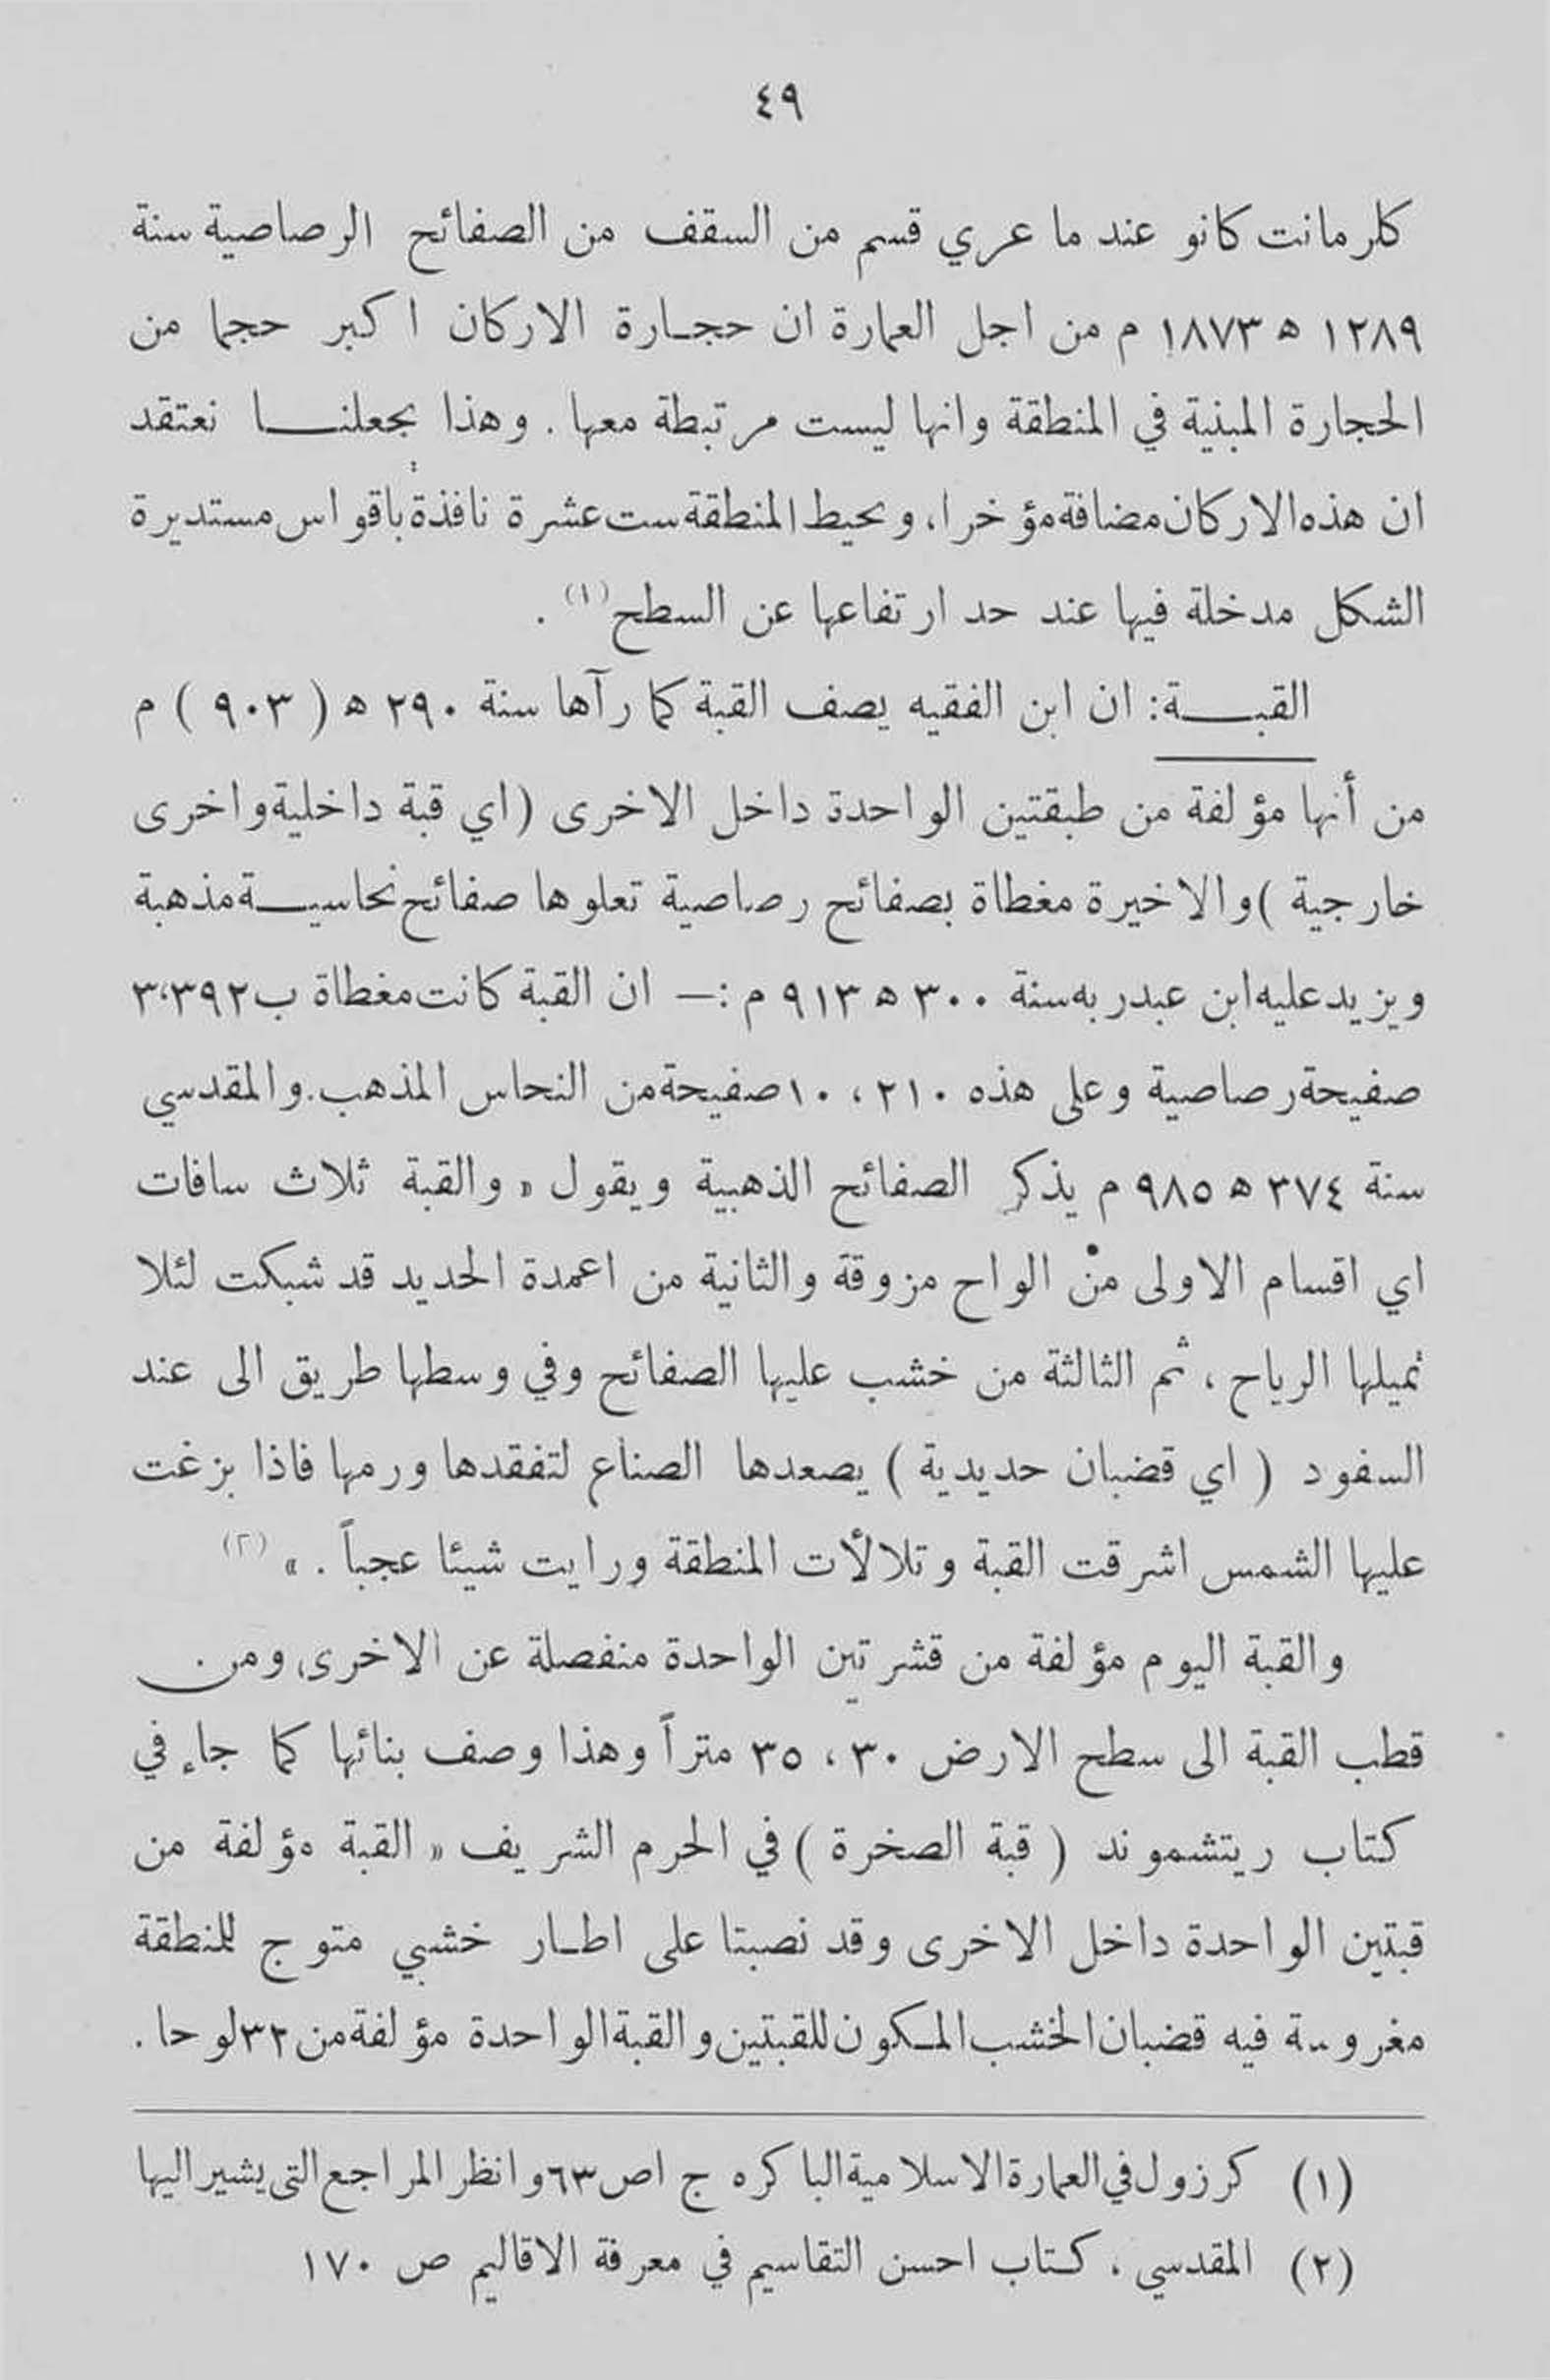 ٤٩
كلرمانت كانو عند ما عري قسم من السقف من الصفائح الرصاصية سنة
١٢٨٩ ه ١٨٧٣ م من اجل العمارة ان حجـارة الاركان اكبر حجما من
الحجارة المبنية في المنطقة وانها ليست مرتبطة معها . وهذا يجعلنـــا نعتقد
ان هذه الاركان مضافة مؤخرا، ويحيط المنطقة ست عشرة نافذة باقواس مستديرة
الشكل مدخلة فيها عند حد ارتفاعها عن السطح (١) .
القبـــة: ان ابن الفقيه يصف القبة كما رآها سنة ٢٩٠ ه ( ٩٠٣ ) م
من أنها مؤلفة من طبقتين الواحدة داخل الاخرى (اي قبة داخلية واخرى
خارجية ) والاخيرة مغطاة بصفائح رصاصية تعلوها صفائح نحاسيـــة مذهبة
ويزيد عليه ابن عبدربه سنة ٣٠٠ ه ٩١٣ م :— ان القبة كانت مغطاة ب ٣،٣٩٢
صفيحة رصاصية وعلى هذه ٢١٠ ، ١٠ صفيحة من النحاس المذهب . والمقدسي
سنة ٣٧٤ ه ٩٨٥ م يذكر الصفائح الذهبية ويقول « والقبة ثلاث سافات
اي اقسام الاولى من الواح مزوقة والثانية من اعمدة الحديد قد شبكت لئلا
تميلها الرياح ، ثم الثالثة من خشب عليها الصفائح وفي وسطها طريق الى عند
السفود ( اي قضبان حديدية ) يصعدها الصناع لتفقدها ورمها فاذا بزغت
عليها الشمس اشرقت القبة وتلالأت المنطقة ورايت شيئا عجباً . » (٢)
والقبة اليوم مؤلفة من قشرتين الواحدة منفصلة عن الاخرى، ومن
قطب القبة الى سطح الارض ٣٠ ، ٣٥ متراً وهذا وصف بنائها كما جاء في
كتاب ريتشموند ( قبة الصخرة ) في الحرم الشريف « القبة مؤلفة من
قبتين الواحدة داخل الاخرى وقد نصبتا على اطـار خشبي متوج للمنطقة
مغروسة فيه قضبان الخشب المـكون للقبتين والقبة الواحدة مؤلفة من ٣٢ لوحا .
(١) كرزول في العمارة الاسلامية الباكره ج ١ ص ٦٣ وانظر المراجع التى يشير اليها
(٢) المقدسي ، كتاب احسن التقاسيم في معرفة الاقاليم ص ١٧٠